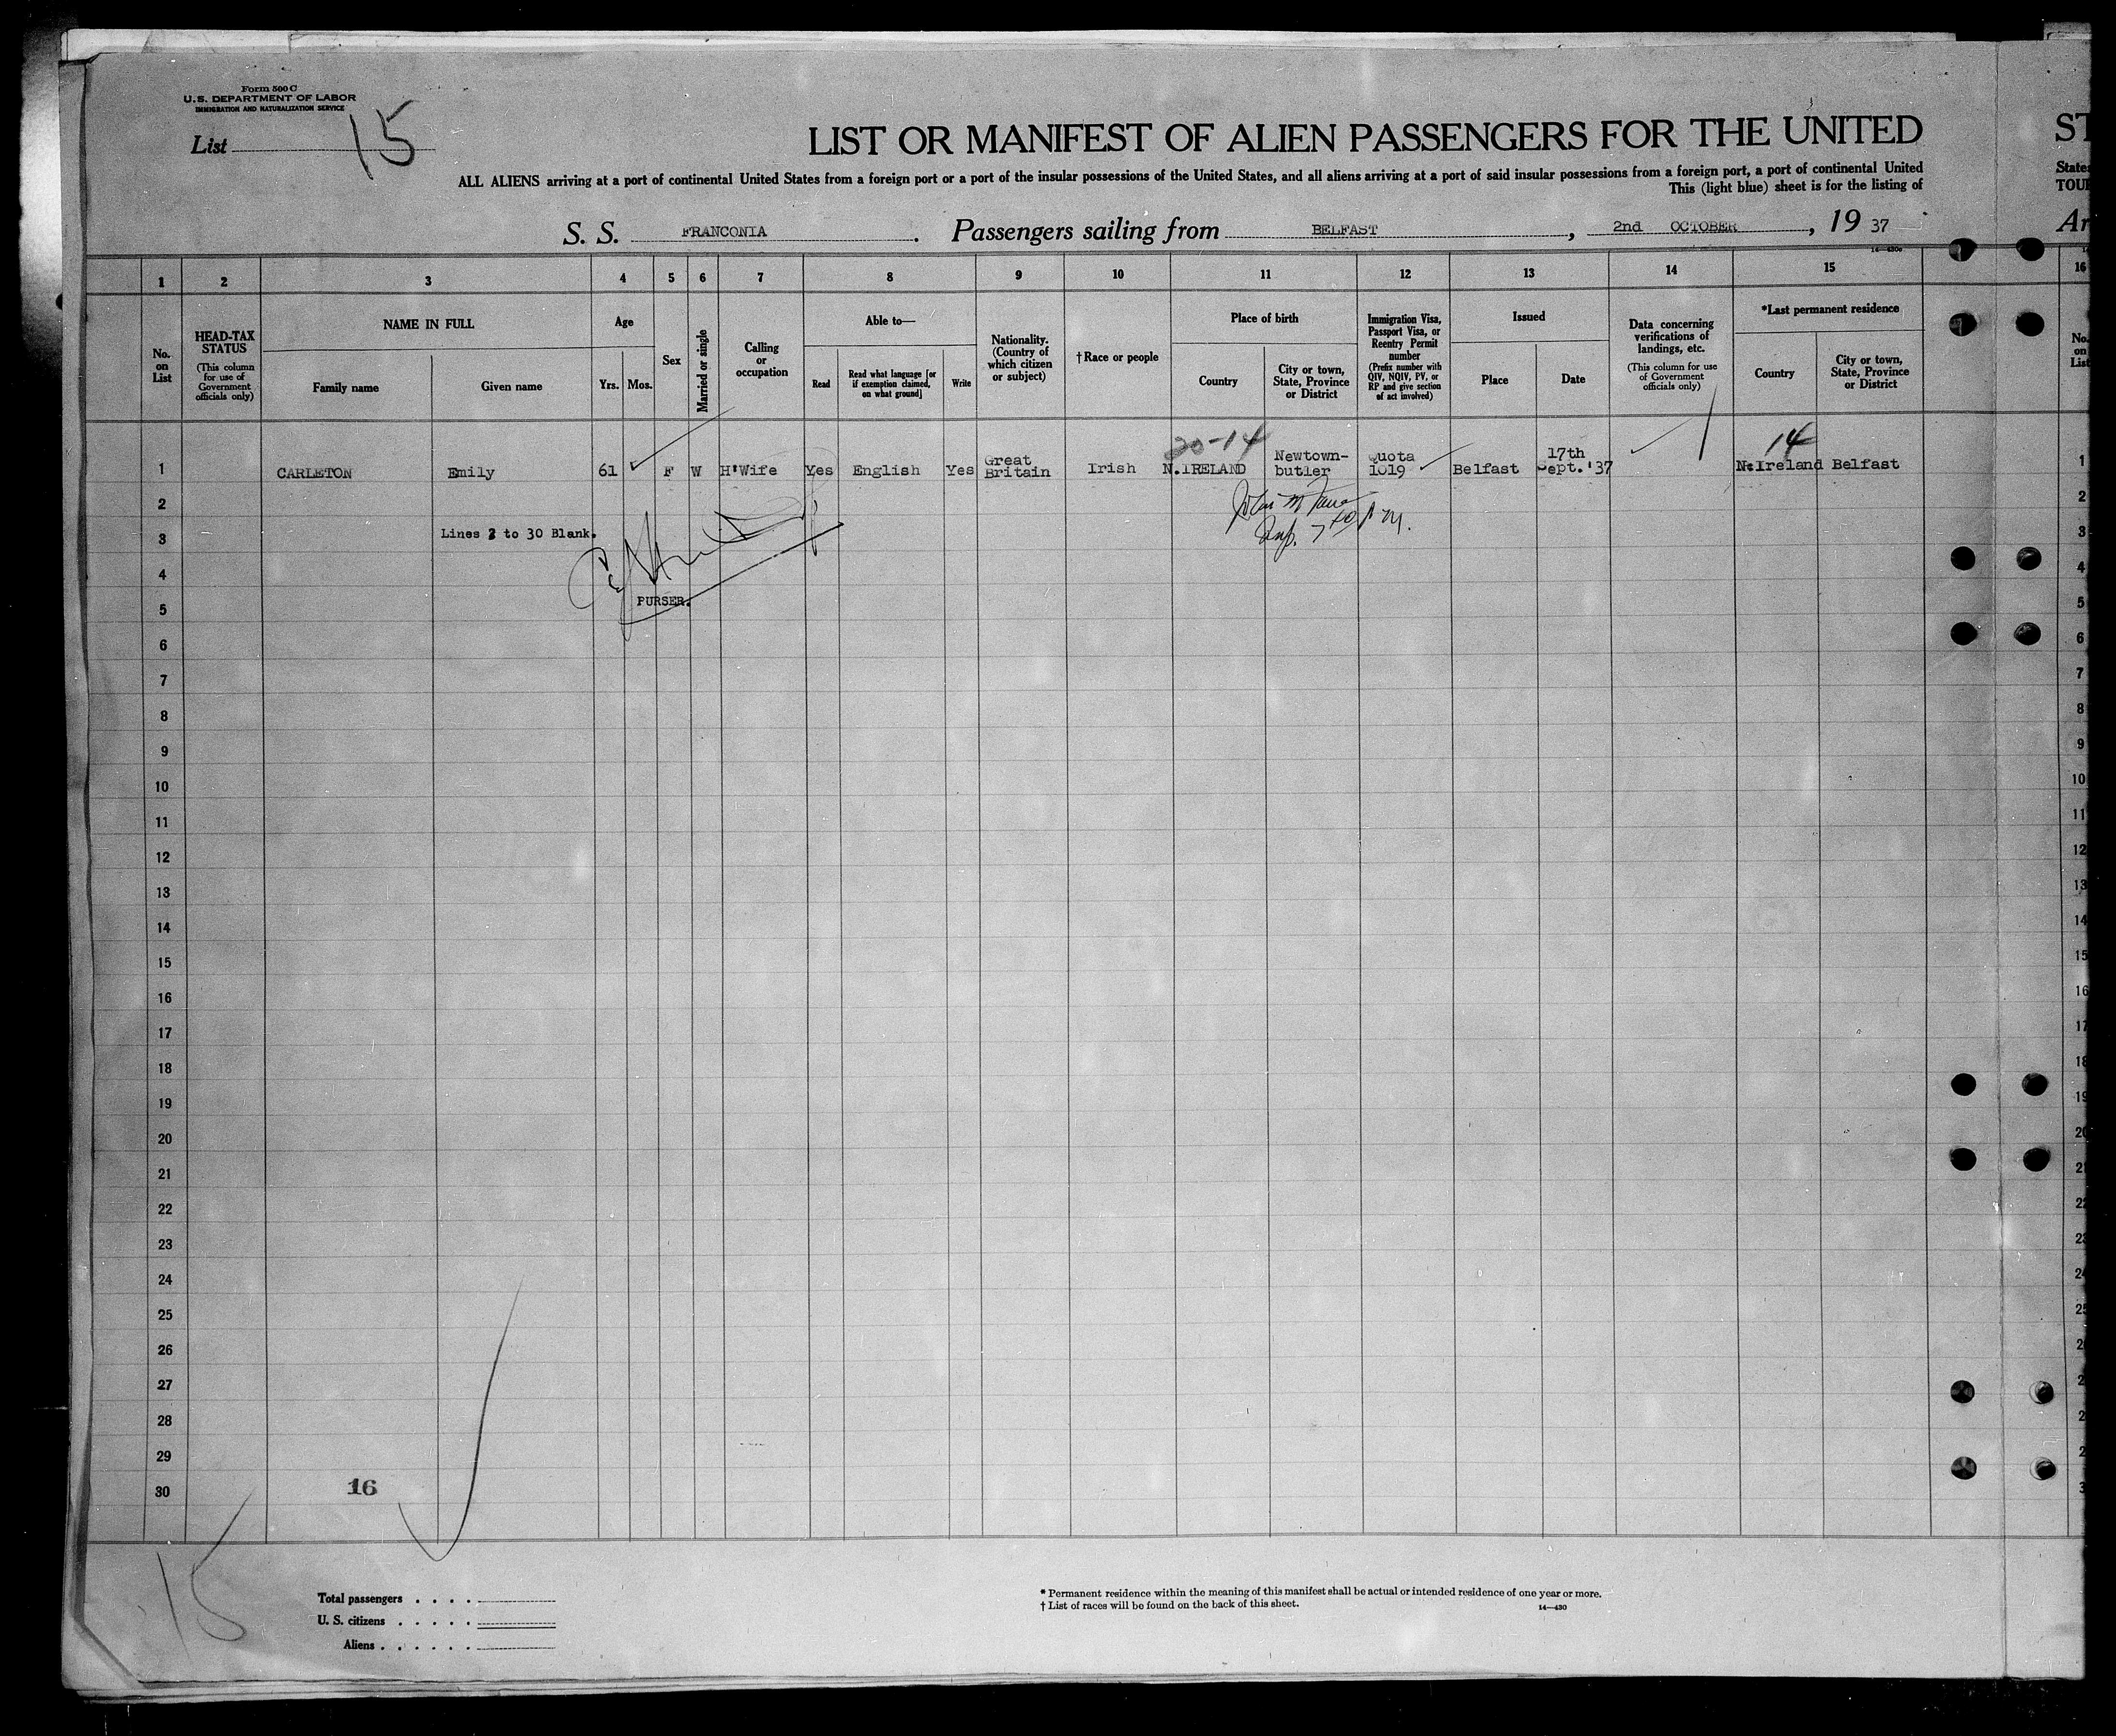 Form 500 C
U.S. DEPARTMENT OF LABOR
IMMIGRATION AND NATURALIZATION SERVICE
List 15
LIST OR MANIFEST OF ALIEN PASSENGERS FOR THE UNITED
ST
ALL ALIENS arriving at a port of continental United States from a foreign port or a port of the insular possessions of the United States, and all aliens arriving at a port of said insular possessions from a foreign port, a port of continental United
States
This (light blue) sheet is for the listing of
TOU
S. S. FRANCONIA. Passengers sailing from BELFAST, 2nd OCTOBER, 19 37
Ar
14—430a
1 2 3 4 5 6 7 8 9 10 11 12 13 14 15 16
No. on List
HEAD-TAX STATUS
(This column for use of Government officials only)
NAME IN FULL
Family name
Given name
Age
Yrs.
Mos.
Sex
Married or single
Calling or occupation
Able to—
Read
Read what language [or if exemption claimed, on what ground]
Write
Nationality. (Country of which citizen or subject)
†Race or people
Place of birth
Country
City or town, State, Province or District
Immigration Visa, Passport Visa, or Reentry Permit number
(Prefix number with QIV, NQIV, PV, or RP and give section of act involved)
Issued
Place
Date
Data concerning verifications of landings, etc.
(This column for use of Government officials only)
*Last permanent residence
Country
City or town, State, Province or District
No. on List
20-14
14
1 CARLETON Emily 61 F W H'Wife Yes English Yes Great Britain Irish N.IRELAND Newtown-butler Quota 1019 Belfast 17th Sept.'37 N.Ireland Belfast 1
2
2
3 Lines 2 to 30 Blank.
3
4
4
5 PURSER.
5
6
6
7
7
8
8
9
9
10
10
11
11
12
12
13
13
14
14
15
15
16
16
17
17
18
18
19
19
20
20
21
21
22
22
23
23
24
24
25
25
26
26
27
28
29
30
16
15
Total passengers . . . .
U. S. citizens . . . . .
Aliens . . . . . .
* Permanent residence within the meaning of this manifest shall be actual or intended residence of one year or more.
† List of races will be found on the back of this sheet.
14—430